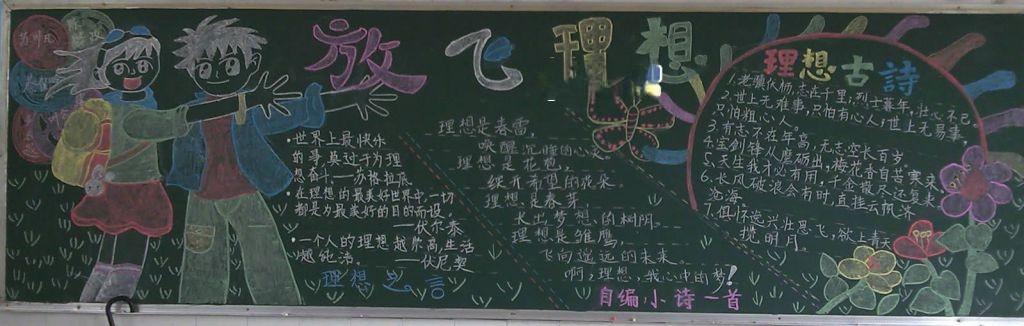 放飞理想
世界上最快乐
的事,莫过于为理
想奋斗——苏格拉底
在理想的最美好世界中,一切
都是为最美好的目的而设。
——伏尔泰
一个人的理想越崇高,生活
越纯洁。——伏尼契
理想之言
理想是春雷,
唤醒沉睡的心灵
理想是花苞,
绽开希望的花朵
理想是春芽,
长出梦想的树阴
理想是雏鹰,
飞向遥远的未来
啊,理想,我心中的梦!
自编小诗一首
理想古詩
1.老骥伏枥,志在千里;烈士暮年,壮心不已。
2.世上无难事,只怕有心人;世上无易事,
只怕粗心人。
3.有志不在年高,无志空长百岁。
4.宝剑锋从磨砺出,梅花香自苦寒来
5.天生我才必有用,千金散尽还复来
6.长风破浪会有时,直挂云帆济
沧海。
7.俱怀逸兴壮思飞,欲上青天
揽明月。